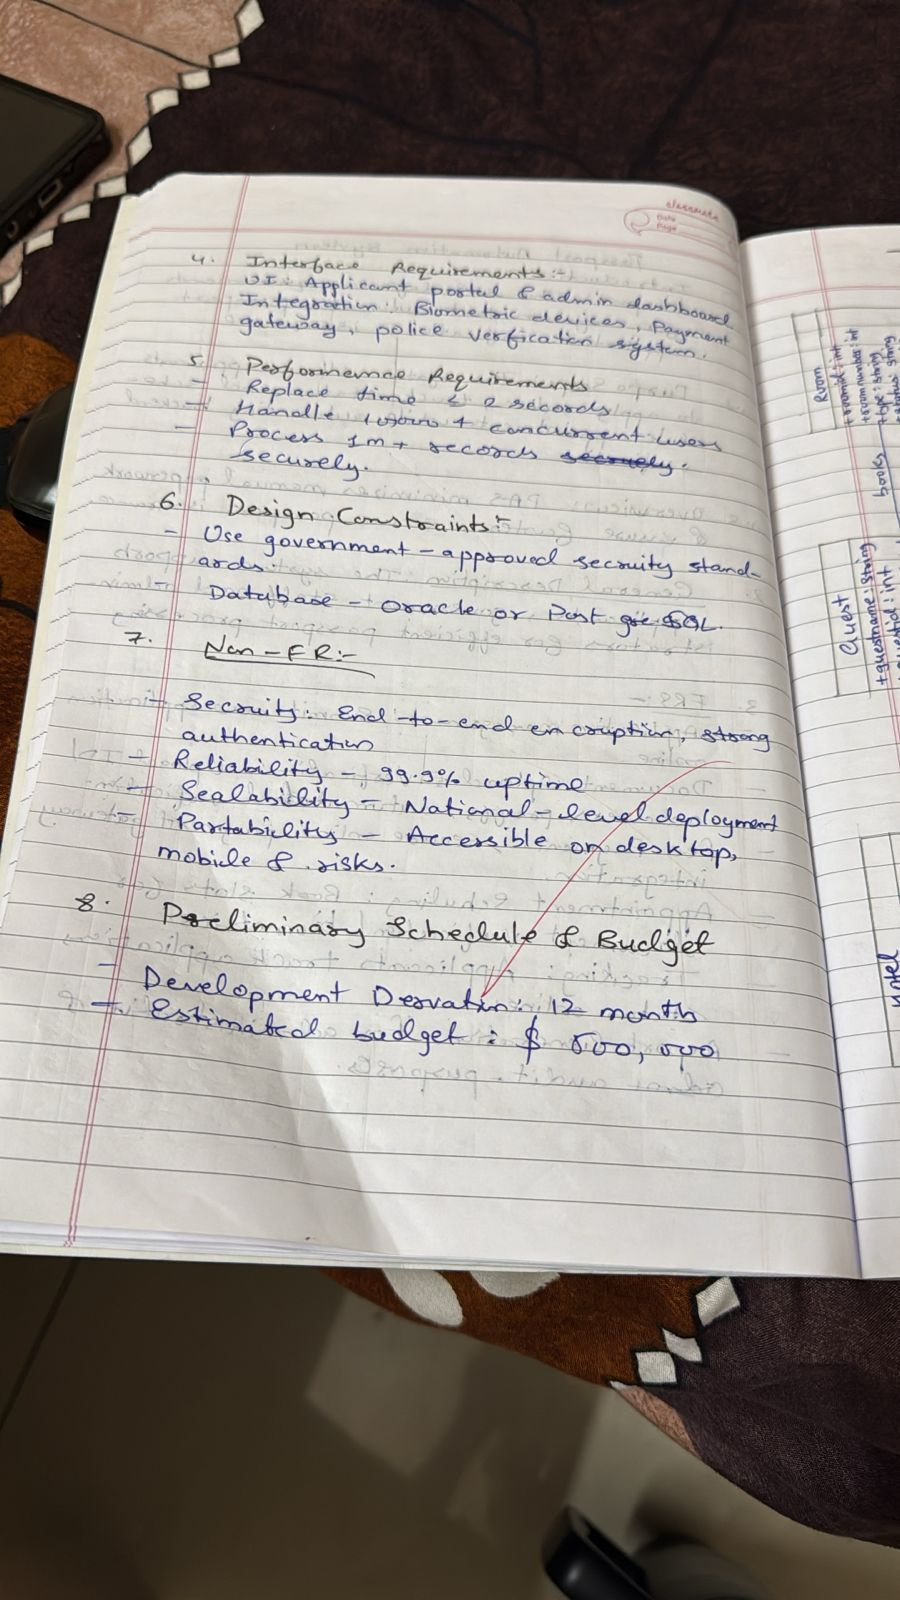 classmate
Date
Page
4. Interface Requirements:-
UI: Applicant portal & admin dashboard
Integration: Biometric devices, Payment
gateway, police verfication system.
5. Performence Requirements
- Replace time ≤ 2 seconds
- Handle + concurrent users
- Process 1M+ records secruely.
securely.
6. Design Constraints:-
- Use government-approved secruity stand-
ards.
- Database - Oracle or Post gre SQL.
7. Non-FR:-
- Secruity: End-to-end encruption, strong
authentication
- Reliability - 99.9% uptime
- Sealability - National-level deployment
- Partability - Accessible on desktop,
mobile & risks.
8. Preliminary Schedule & Budget
- Development Dervation: 12 month
- Estimated budget: $ 500,000
Room
+roomid: int
+room number: int
+type: string
+status: string
books
Guest
+guestname: String
+guestid: int
Hotel